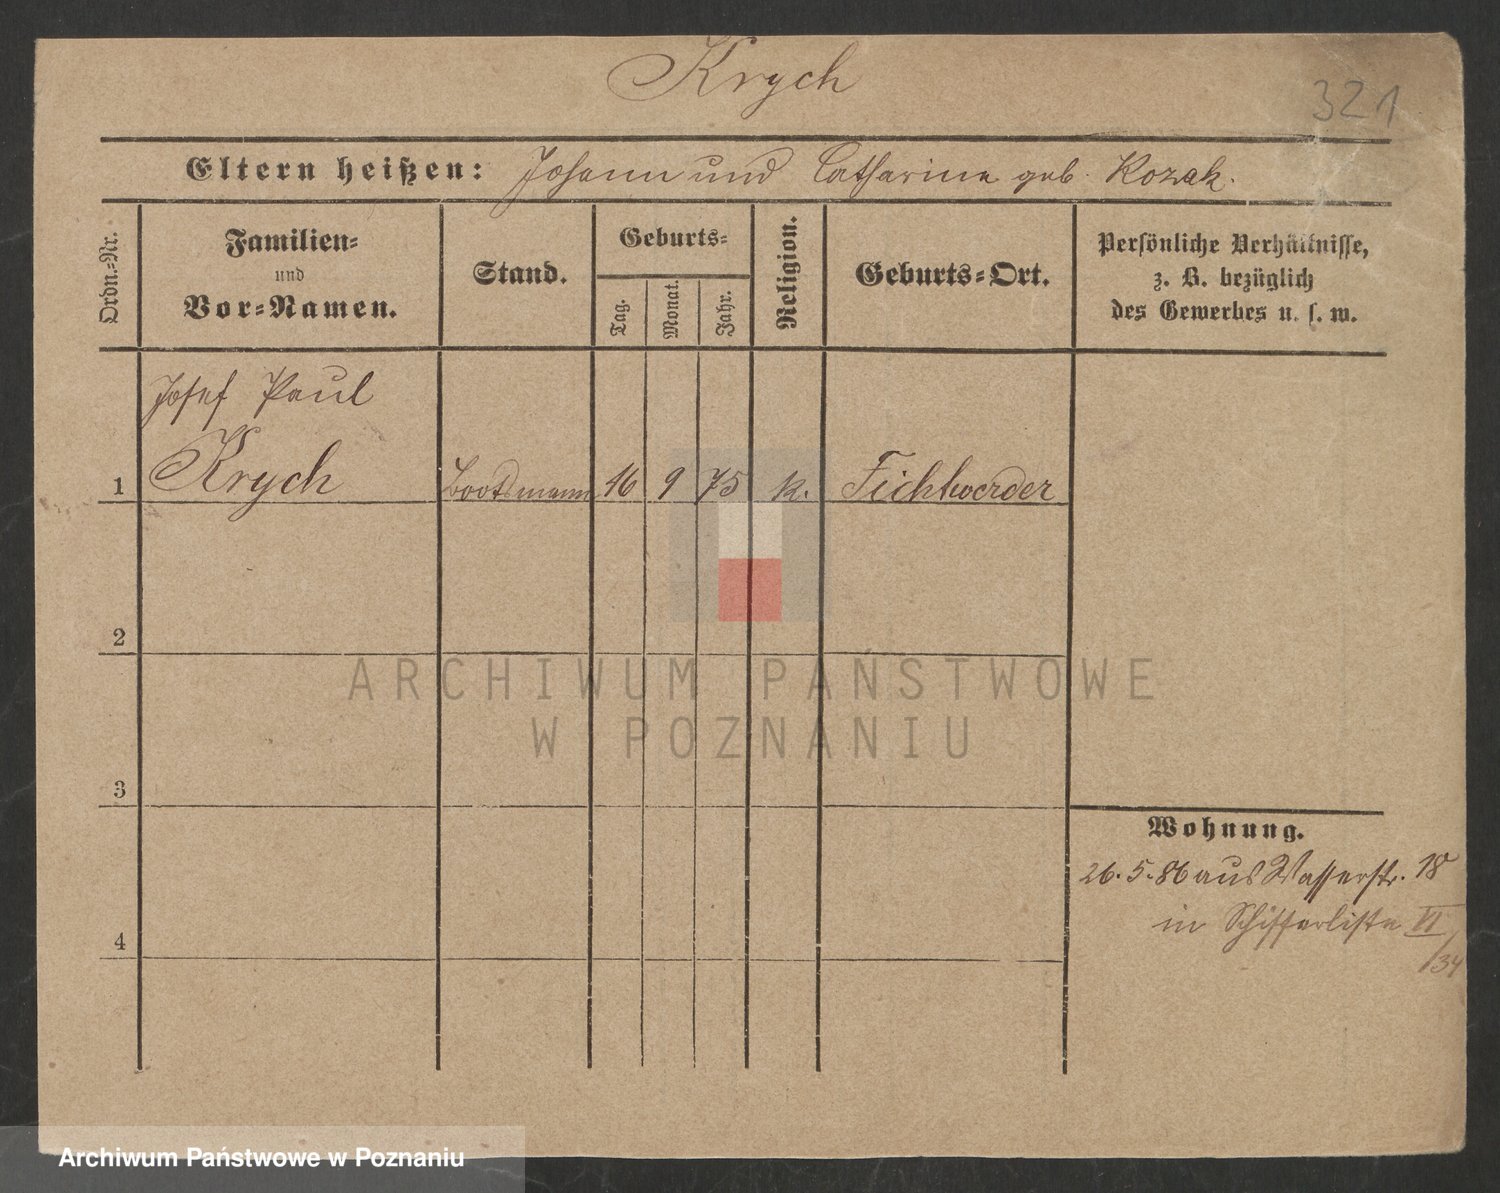 Krych
321
Eltern heißen: Johann und Catharina geb. Kozak.
Ordn.-Nr.
Familien-
und
Vor-Namen.
Stand.
Geburts-
Tag.
Monat.
Jahr.
Religion.
Geburts-Ort.
Persönliche Verhältnisse,
z. B. bezüglich
des Gewerbes u. s. w.
Josef Paul
1 Krych Bootsmann 16 9 75 k. Fichtwerder
2
ARCHIWUM PAŃSTWOWE
W POZNANIU
3
Wohnung.
26.5.86 aus Wasserstr. 18
in Schifferliste VI
/34
4
Archiwum Państwowe w Poznaniu